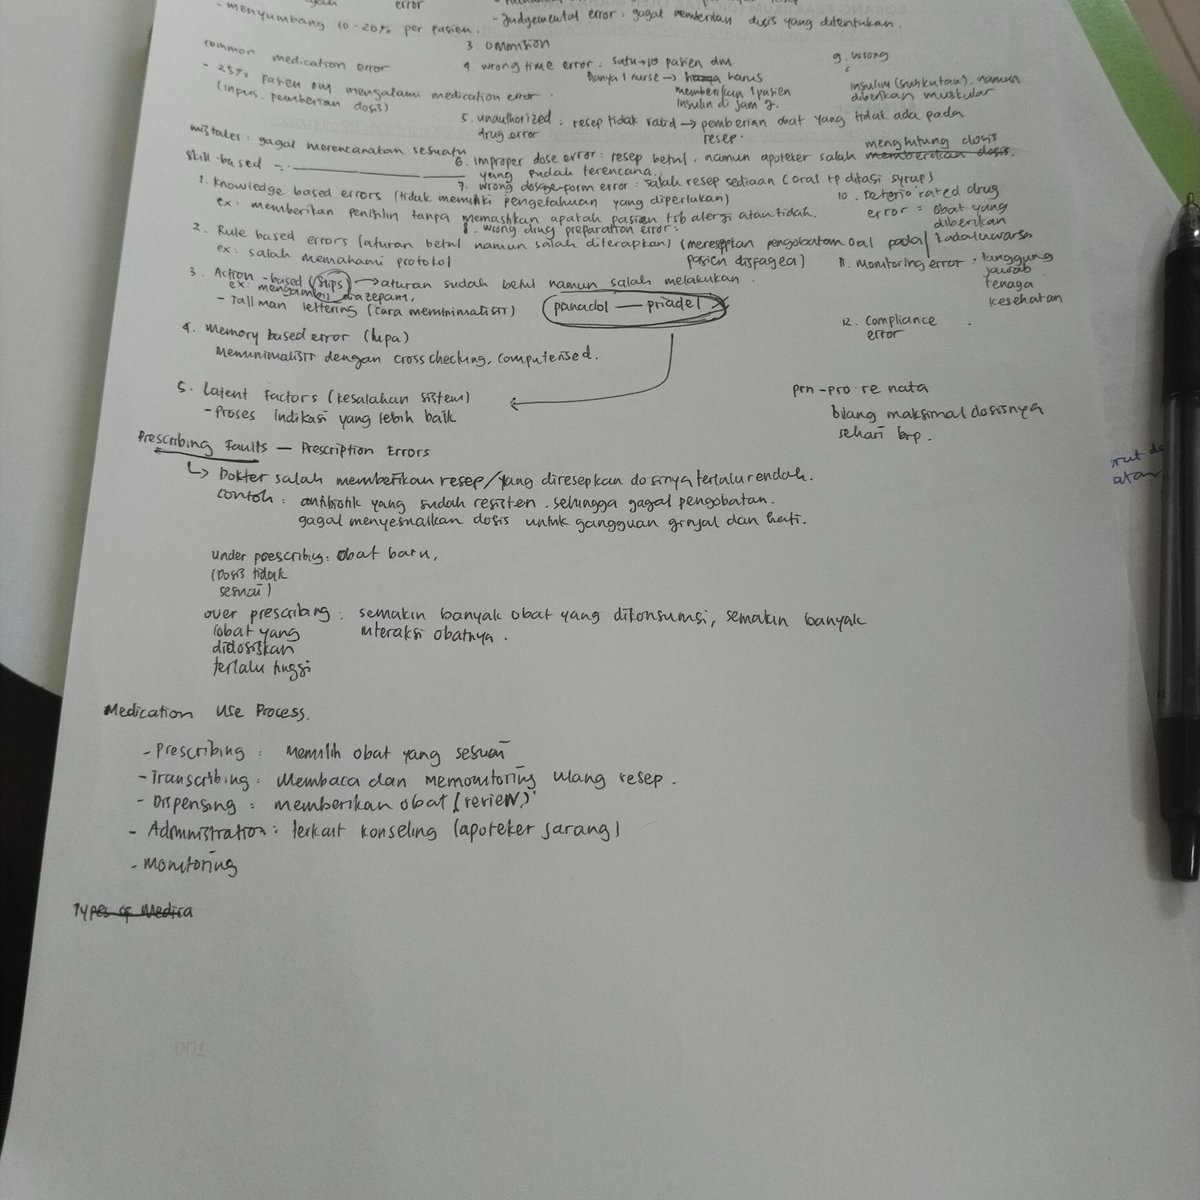 error
- menyumbang 10-20% per pasien.
- Judgemental error : gagal memberikan dosis yang ditentukan.
3. ommision
common medication error
4. wrong time error : satu→10 pasien dm
hanya 1 nurse → harus
memberikan 1 pasien
insulin di jam 7.
9. wrong
insulin (subkutan), namun
diberikan muskular
- 25% pasien DM mengalami medication error.
(inpus, pemberian dosis)
5. unauthorized : resep tidak valid → pemberian obat yang tidak ada pada
drug error resep.
mistakes : gagal merencanakan sesuatu
yang sudah terencana.
Skill-based
6. improper dose error : resep betul, namun apoteker salah memberikan dosis.
menghitung dosis
7. wrong dosage form error : salah resep sediaan (oral tp dikasi syrup)
1. Knowledge based errors (tidak memiliki pengetahuan yang diperlukan)
ex : memberikan penisilin tanpa memastikan apakah pasien tsb alergi atau tidak.
10. Deteriorated drug
error = obat yang
diberikan
kadaluwarsa
8. wrong drug preparation error :
(meresepkan pengobatan oal pada
pasien disfagea)
2. Rule based errors (aturan betul namun salah diterapkan)
ex : salah memahami protokol
11. Monitoring error : tanggung
jawab
tenaga
kesehatan
3. Action-based (slips) → aturan sudah betul namun salah melakukan.
ex : mengambil diazepam,
- Tallman lettering (cara meminimalisir)
panadol — priadel
12. Compliance
error
4. Memory based error (lupa)
Meminimalisir dengan cross checking, computerised.
5. Latent Factors (kesalahan sistem)
- Proses indikasi yang lebih baik
prn - pro re nata
bilang maksimal dosisnya
sehari brp.
Prescribing Faults — Prescription Errors
↳ Dokter salah memberikan resep/yang diresepkan dosisnya terlalu rendah.
contoh : antibiotik yang sudah resisten. sehingga gagal pengobatan.
gagal menyesuaikan dosis untuk gangguan ginjal dan hati.
atau
under prescribing : obat baru,
(Dosis tidak
sesuai)
over prescribing : semakin banyak obat yang dikonsumsi, semakin banyak
(obat yang interaksi obatnya.
didosiskan
terlalu tinggi
Medication Use Process.
- Prescribing : memilih obat yang sesuai
- Transcribing : Membaca dan memonitoring ulang resep.
- Dispensing : memberikan obat (review)
- Administration : terkait konseling (apoteker jarang)
- Monitoring
Types of Medica
100